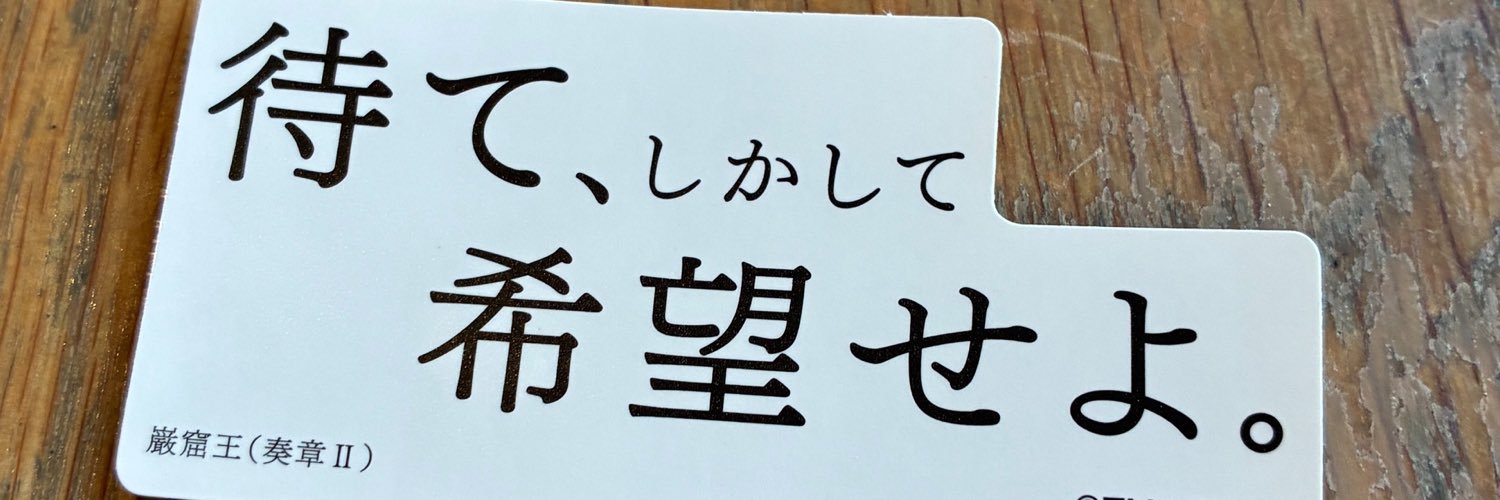 待て、しかして
希望せよ。
巌窟王(奏章Ⅱ)